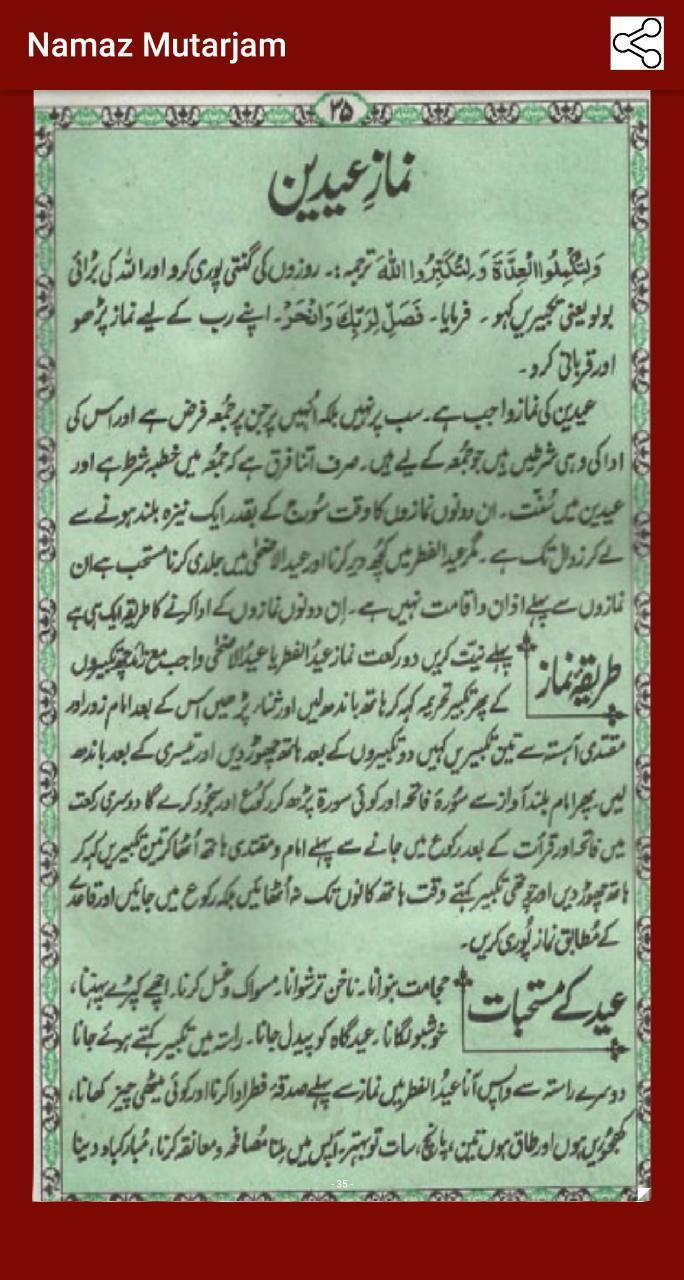 Namaz Mutarjam
۳۵
نمازِ عیدین
وَلِتُكْمِلُوا الْعِدَّةَ وَلِتُكَبِّرُوا اللّٰهَ ترجمہ :۔ روزوں کی گنتی پوری کرو اور اللہ کی بڑائی
بولو یعنی تکبیریں کہو ۔ فرمایا ۔ فَصَلِّ لِرَبِّكَ وَانْحَرْ ۔ اپنے رب کے لیے نماز پڑھو
اور قربانی کرو ۔
عیدین کی نماز واجب ہے ۔ سب پر نہیں بلکہ اُنہیں پر جن پر جمُعہ فرض ہے اور اس کی
ادا کی وہی شرطیں ہیں جو جمُعہ کے لیے ہیں ۔ صرف اتنا فرق ہے کہ جمُعہ میں خطبہ شرط ہے اور
عیدین میں سُنّت ۔ ان دونوں نمازوں کا وقت سُورج کے بقدر ایک نیزہ بلند ہونے سے
لے کر زوال تک ہے ۔ مگر عید الفطر میں کُچھ دیر کرنا اور عید الاضحٰی میں جلدی کرنا مستحب ہے ان
نمازوں سے پہلے اذان و اقامت نہیں ہے ۔ اِن دونوں نمازوں کے ادا کرنے کا طریقہ ایک ہی ہے
طریقۂ نماز
پہلے نیّت کریں دو رکعت نماز عیدُ الفطر یا عیدُ الاضحٰی واجب مع زائد چھ تکبیروں
کے پھر تکبیر تحریمہ کہہ کر ہاتھ باندھ لیں اور ثناء پڑھیں اس کے بعد امام زور اور
مقتدی آہستہ سے تین تکبیریں کہیں دو تکبیروں کے بعد ہاتھ چھوڑ دیں اور تیسری کے بعد باندھ
لیں ۔ پھر امام بلند آواز سے سُورۂ فاتحہ اور کوئی سورۃ پڑھ کر رکوُع اور سجُود کرے گا دوسری رکعت
میں فاتحہ اور قرأت کے بعد رکوع میں جانے سے پہلے امام و مقتدی ہاتھ اُٹھا کر تین تکبیریں کہہ کر
ہاتھ چھوڑ دیں اور چوتھی تکبیر کہتے وقت ہاتھ کانوں تک نہ اُٹھائیں بلکہ رکوع میں جائیں اور قاعدے
کے مُطابق نماز پُوری کریں ۔
عید کے مستحبات
حجامت بنوانا ۔ ناخن ترشوانا ۔ مسواک و غسل کرنا ۔ اچھے کپڑے پہننا ،
خوشبو لگانا ۔ عید گاہ کو پیدل جانا ۔ راستہ میں تکبیر کہتے ہوئے جانا
دوسرے راستہ سے واپس آنا عیدُ الفطر میں نماز سے پہلے صدقۂ فطر ادا کرنا اور کوئی میٹھی چیز کھانا ،
کھجوُریں ہوں اور طاق ہوں تین ، پانچ ، سات تو بہتر ۔ آپس میں ملنا مُصافحہ و معانقہ کرنا ، مُبارکباد دینا
- 35 -